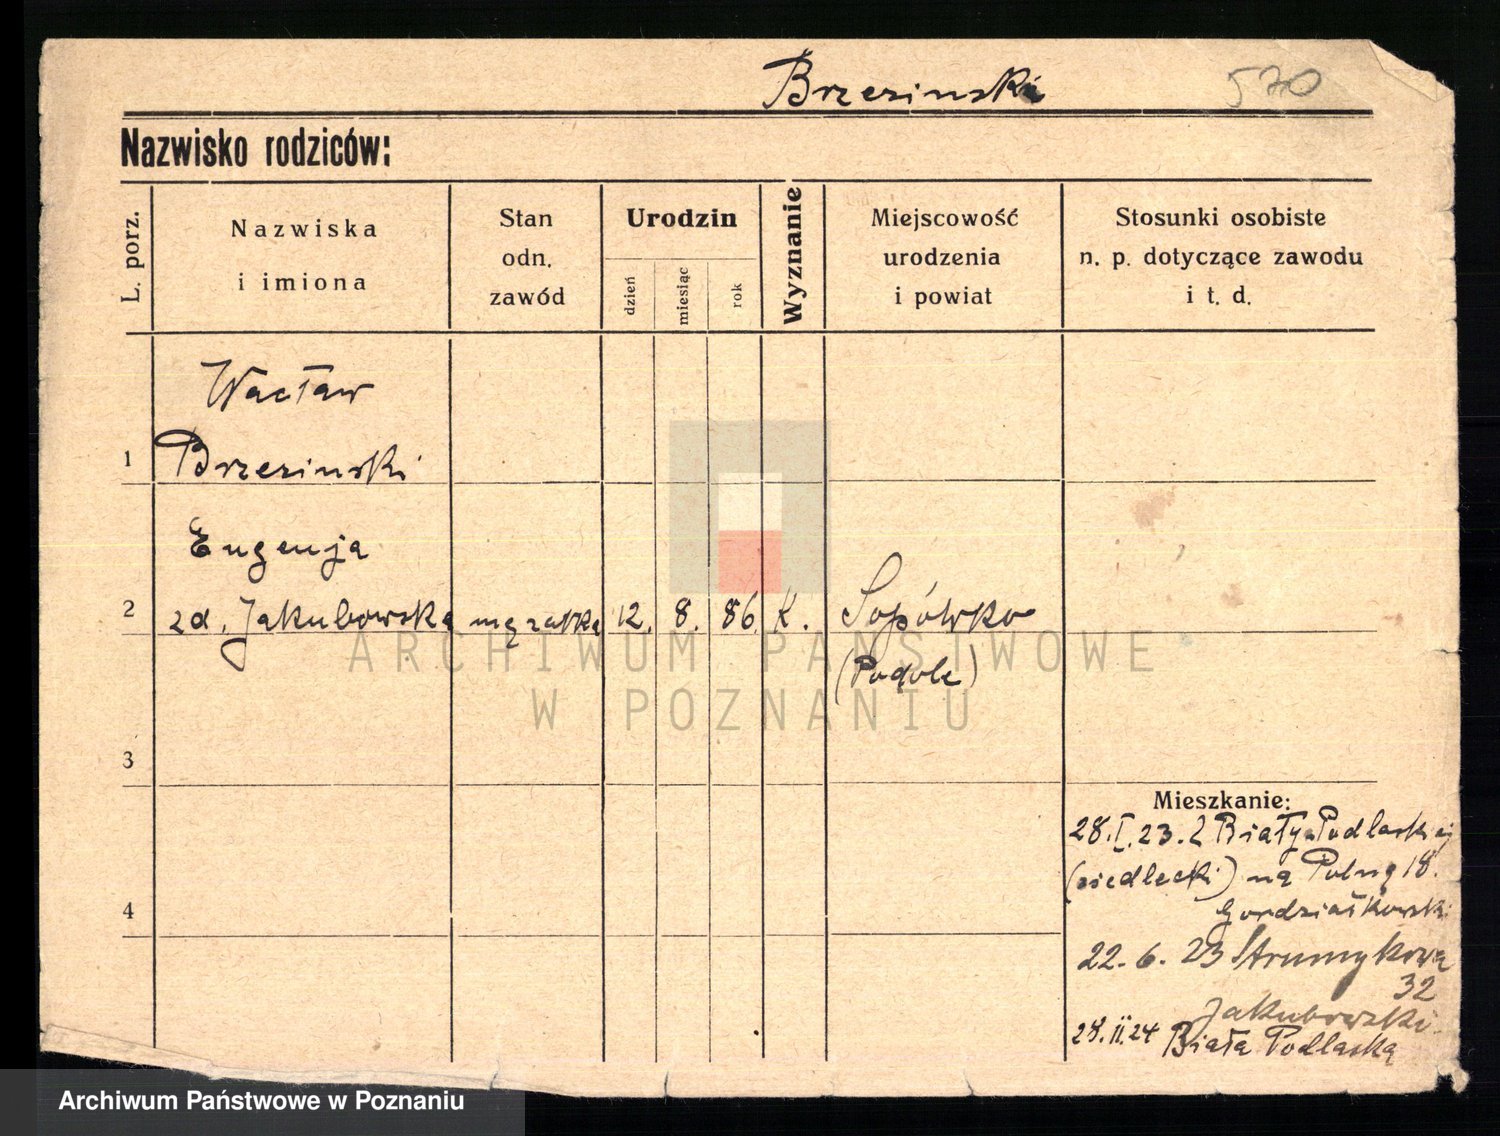 Brzezinski 570
Nazwisko rodziców:
L. porz.
Nazwiska
i imiona
Stan
odn.
zawód
Urodzin
dzień
miesiąc
rok
Wyznanie
Miejscowość
urodzenia
i powiat
Stosunki osobiste
n. p. dotyczące zawodu
i t. d.
Wacław
1 Brzezinski
Eugenja
2 zd. Jakubowska mężatka 12. 8. 86 K. Sopówko
(Podole)
3
4
Mieszkanie:
28.I.23. z Biały-Podlaskiej
(siedlecki) na Polną 18.
Gordziałkowski
22. 6. 23 Strumykowa
32
Jakubowski
28.II.24 Biała Podlaska
ARCHIWUM PAŃSTWOWE
W POZNANIU
Archiwum Państwowe w Poznaniu